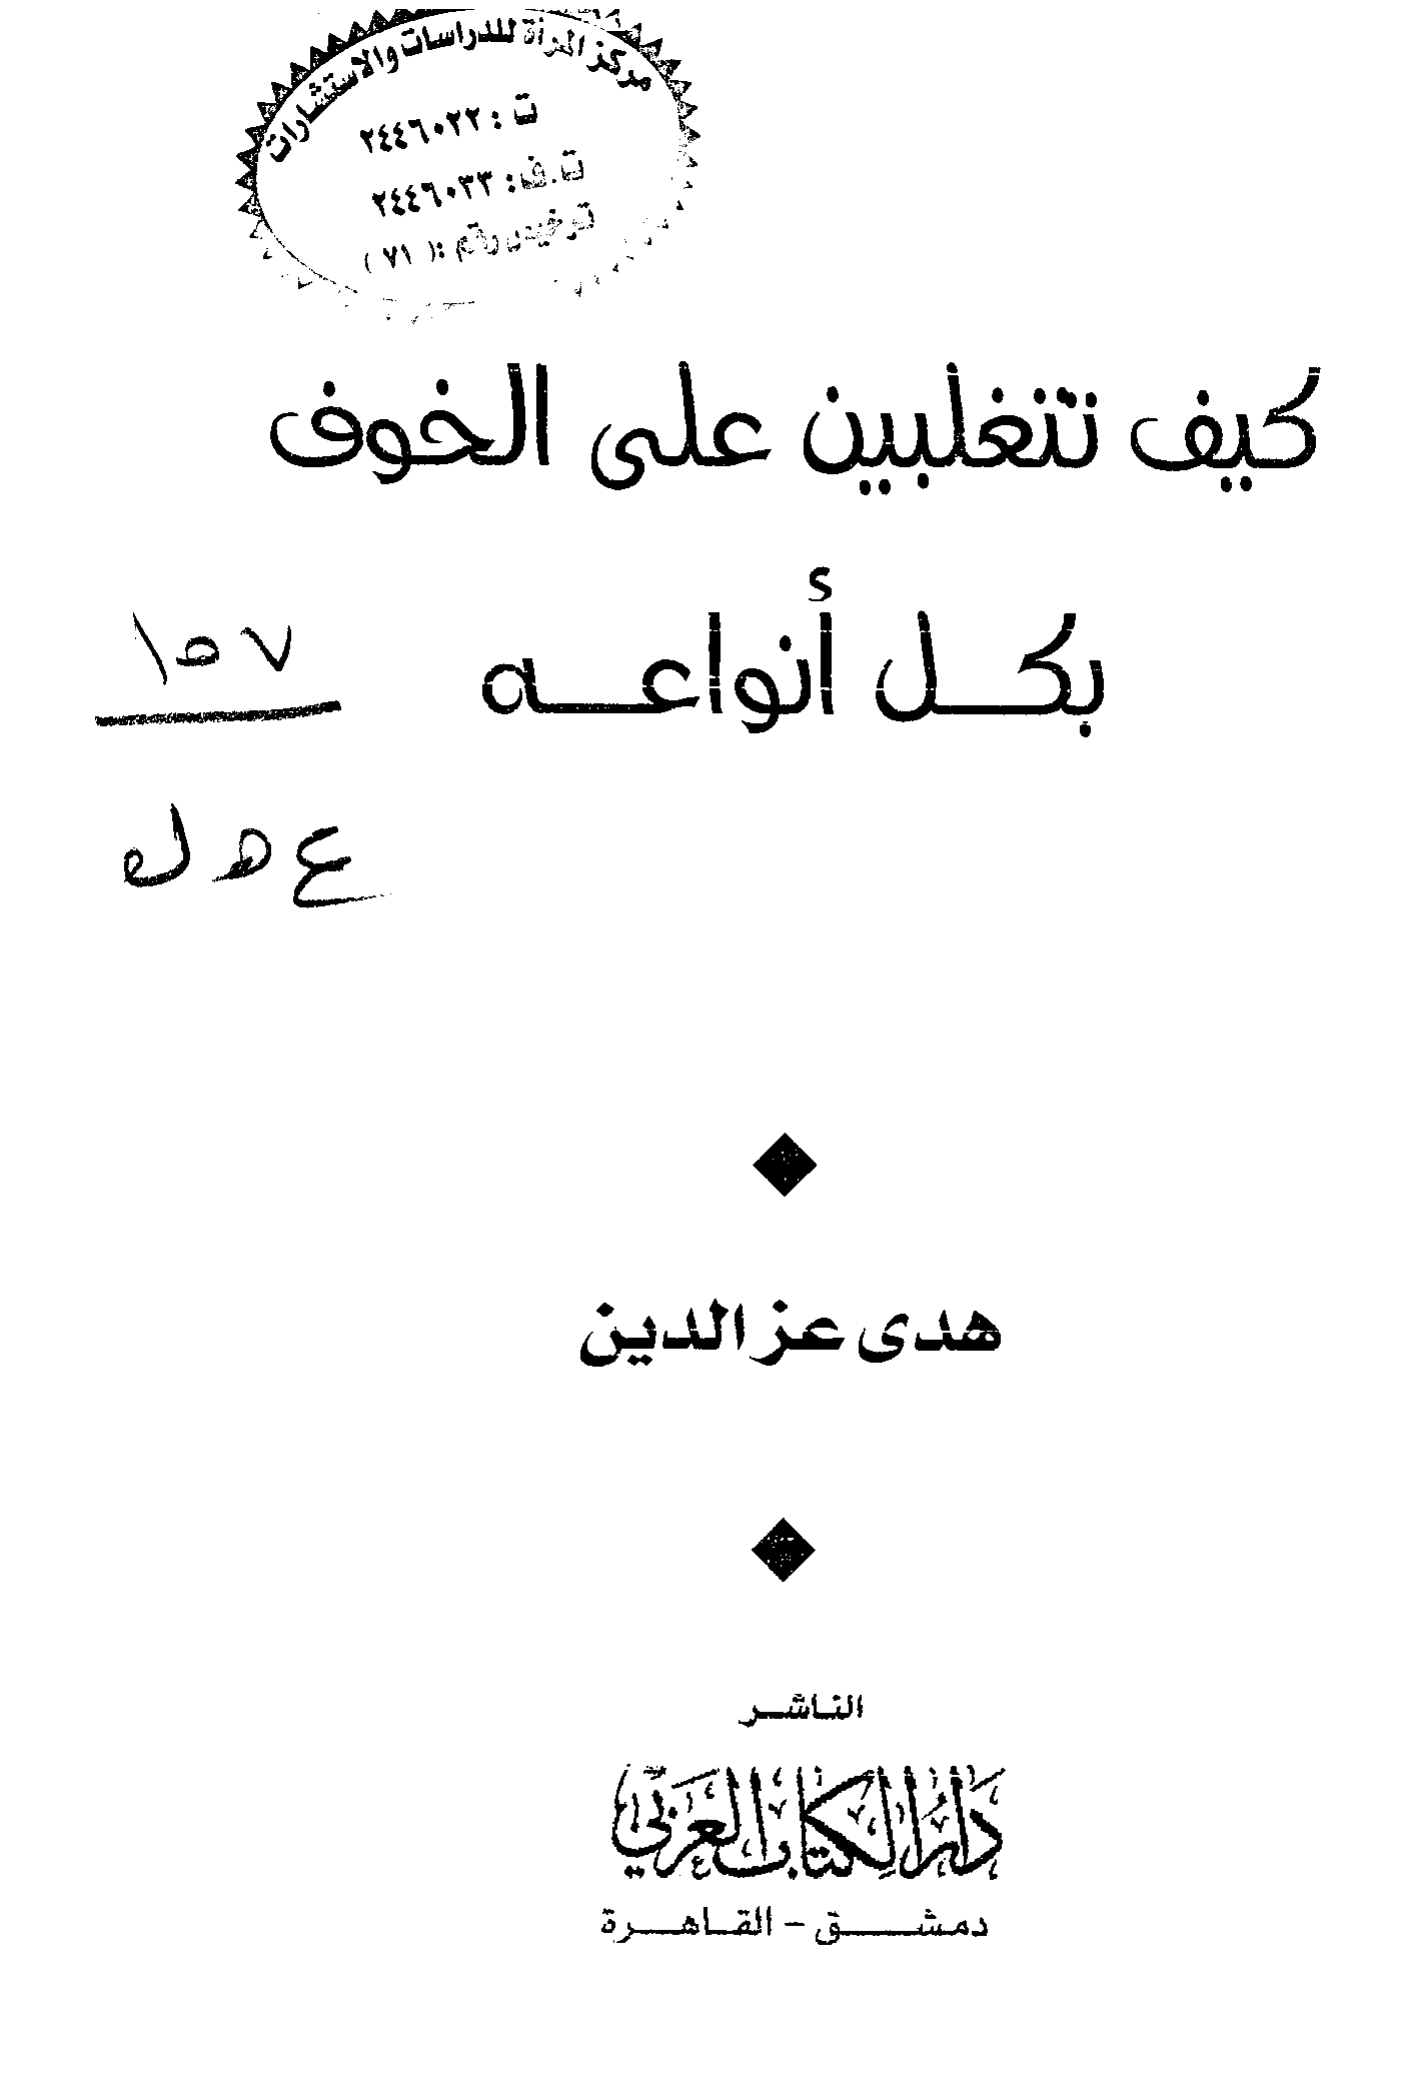 مركز المرأة للدراسات والاستشارات
ت : ٢٤٤٦٠٢٢
ت.ف: ٢٤٤٦٠٣٣
ترخيص رقم :( ٧١ )
كيف تتغلبين على الخوف
بكل أنواعه
١٥٧
ع ه ل
هدى عز الدين
الناشر
دار الكتاب العربي
دمشق - القاهرة